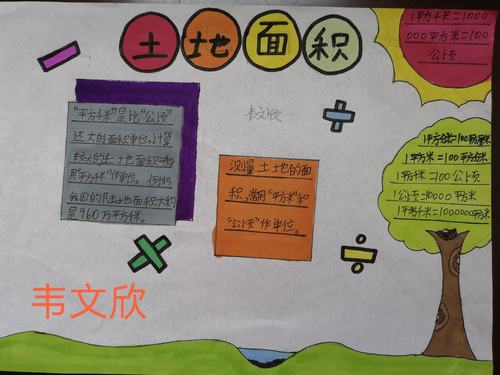 土土地面积
1平方千米=1000
000平方米=100
公顷
韦文欣
"平方千米"是比"公顷"
还大的面积单位,计算
较大的土土地面积一般
用"平方千米"作单位。
我国的陆土地面积大约
是960万平方千米。
测量土土地的面
积,常用"平方米"和
"公顷"作单位。
1平方分米=100平方厘米
1平方米=100平方分米
1平方千米=100公顷
1公顷=10000平方米
1平方千米=1000000平方米
韦文欣